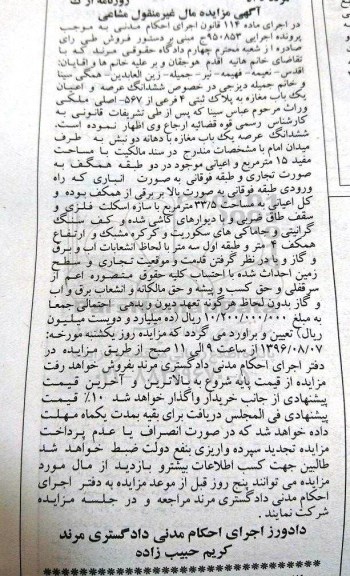 روزنامه ارک
آگهی مزایده مال غیرمنقول مشاعی
در اجرای ماده ۱۱۴ قانون اجرای احکام مدنی به موجب
پرونده اجرایی ۹۵۰۸۵۳ح مبنی بر دستور فروش طی رای
صادره از شعبه محترم چهارم دادگاه حقوقی مرند که با
تقاضای خانم هانیه اقدم هوجقان و بر علیه خانم ها و آقایان:
اقدس - نعیمه - فهیمه - نیر - جمیله - زین العابدین - همگی سینا
و خانم جمیله دیزجی در خصوص ششدانگ عرصه و اعیان
یک باب مغازه به پلاک ثبتی ۴ فرعی از ۵۶۷- اصلی ملکی
وراث مرحوم عباس سینا که پس از طی تشریفات قانونی به
کارشناس رسمی قوه قضائیه ارجاع وی اظهار نموده است،
ششدانگ عرصه یک باب مغازه با دهانه دو نبش به طرف
میدان امام با مشخصات مندرج در سند مالکیت با مساحت
مفید ۱۵ مترمربع و اعیانی موجود در دو طبقه همکف به
صورت تجاری و طبقه فوقانی به صورت انباری که راه
ورودی طبقه فوقانی به صورت بالا بر برقی از همکف بوده و
کل اعیانی به مساحت ۳۳/۵ مترمربع با سازه اسکلت فلزی و
سقف طاق ضربی با دیوارهای کاشی شده و کف سنگ
گرانیتی و جاماکی های سکوریت و کرکره مشبک و ارتفاع
همکف ۴ متر و طبقه اول سه متر با لحاظ انشعابات آب و برق
و گاز و با در نظر گرفتن قدمت و موقعیت تجاری و سطح
زمین احداث شده با احتساب کلیه حقوق متصوره اعم از
سرقفلی و حق کسب و پیشه و حق مالکانه و انشعاب برق و آب
و گاز بدون لحاظ هرگونه تعهد دیون و بدهی احتمالی جمعا
به مبلغ ۱۰/۲۰۰/۰۰۰/۰۰۰ ریال (ده میلیارد و دویست میلیون
ریال) تعیین و براورد می گردد که مزایده روز یکشنبه مورخه:
۱۳۹۶/۰۸/۰۷ از ساعت ۹ الی ۱۱ صبح از طریق مزایده در
دفتر اجرای احکام مدنی دادگستری مرند بفروش خواهد رفت
مزایده از قیمت پایه شروع به بالاترین و آخرین قیمت
پیشنهادی از جانب خریدار واگذار خواهد شد ۱۰٪ قیمت
پیشنهادی فی المجلس دریافت برای بقیه بمدت یکماه مهلت
داده خواهد شد که در صورت انصراف یا عدم پرداخت
مزایده تجدید سپرده واریزی بنفع دولت ضبط خواهد شد
طالبین جهت کسب اطلاعات بیشتر و بازدید از مال مورد
مزایده می توانند پنج روز قبل از موعد مزایده به دفتر اجرای
احکام مدنی دادگستری مرند مراجعه و در جلسه مزایده
شرکت نمایند.
دادورز اجرای احکام مدنی دادگستری مرند
کریم حبیب زاده